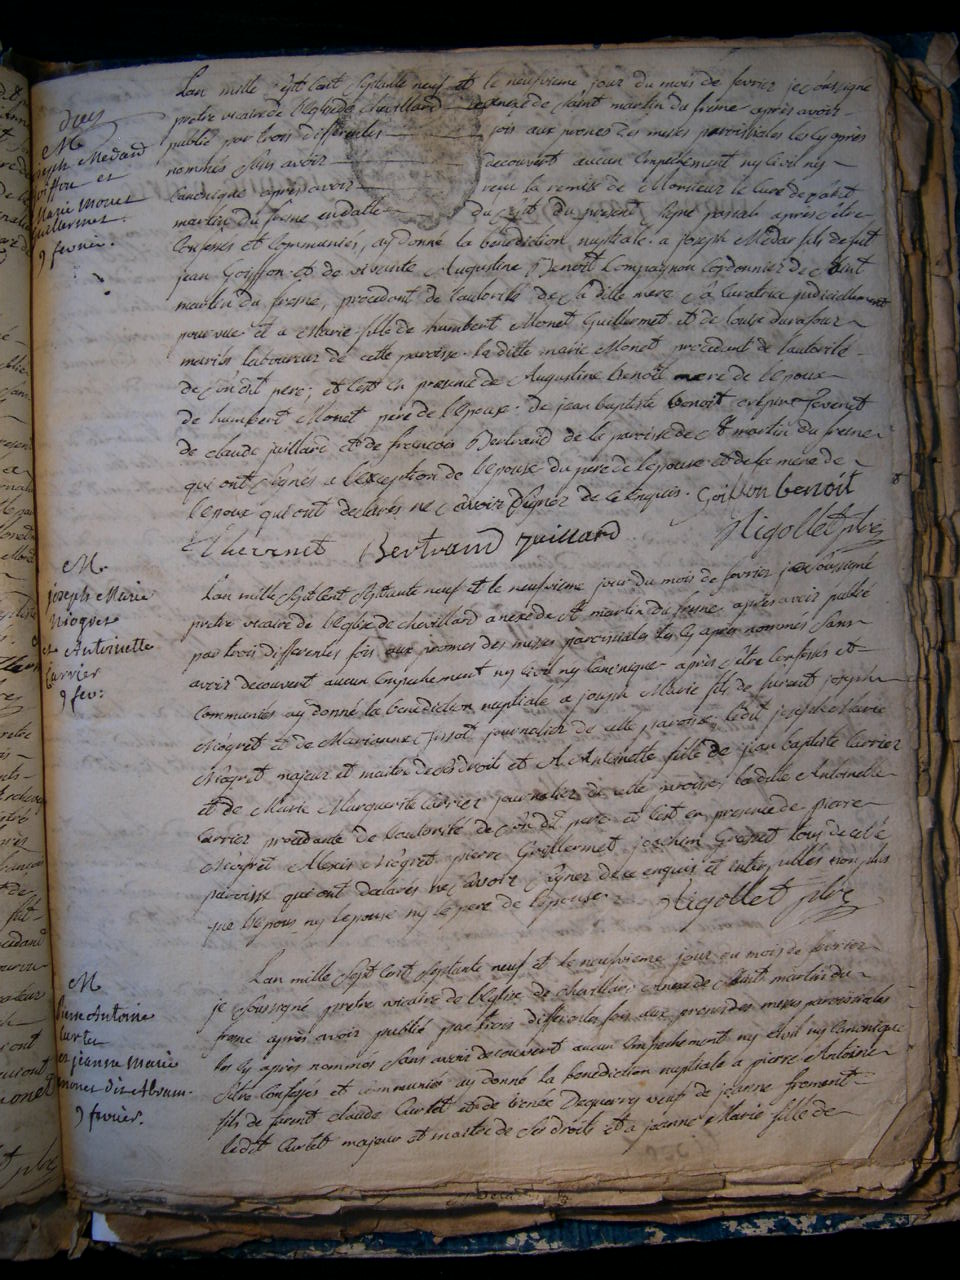 dues
M
joseph Médard
goiffon et
Marie Monet
Guillermet
9 fevrier.
Lan mille sept cent septante neuf et le neufvieme jour du mois de fevrier je soussigné
pretre vicaire de l'Eglise de chevillard anexe de Saint martin du frene après avoir
publié par trois differentes fois aux prones des messes parroissiales les cy après
nommés sans avoir decouvert aucun Empechement ny Civil ny
Canonique après avoir reçu la remise de Monsieur le Curé de saint
martin du fresne en datte du sept du present signé après s'etre
Confessés et Communiés, ay donné la bénédiction nuptiale a joseph Médar fils de fut
jean Goiffon et de vivente Augustine Benoît Compagnon Cordonnier de Saint
martin du fresne, procédant de l'autorité de sa ditte mere sa Curatrice judiciellement
pourvue et a Marie fille de humbert Monet Guillermet et de Louise Durafour
mariés laboureur de cette paroisse. la ditte marie Monet procédant de l'autorité
de son dit pere; et c'est en présence de Augustine Benoît mere de l'epoux
de humbert Monet pere de l'Epouse. de jean baptiste benoit crépin tevenet
de claude juillard et de francois Bertrand de la paroisse de St martin du fresne
qui ont signés a l'exception de l'epouse du pere de l'epouse et de la mere de
l'epoux qui ont declarés ne savoir signer de ce enquis. Goiffon benoit
Thevenet Bertrand juillard Nigollet ptre
M.
joseph Marie
Niogret
et Antoinette
Carrier
9 fev:
Lan mille sept cent septante neuf et le neufvieme jour du mois de fevrier je soussigné
pretre vicaire de l'Eglise de chevillard anexe de St martin du fresne, après avoir publié
par trois differentes fois aux prones des messes paroissiales les cy après nommés Sans
avoir decouvert aucun Empechement ny Civil ny Canonique après s'etre Confessés et
Communiés ay donné la benediction nuptiale a joseph Marie fils de furent joseph
Niogret et de Marianne journalier de cette paroisse. ledit joseph Marie
Niogret majeur et maitre de ses droits et A Antoinette fille de jean baptiste Carrier
et de Marie Marguerite Carrier journalier de cette paroisse, la ditte Antoinette
Carrier procédante de l'autorité de son dit pere et c'est en presence de pierre
Niogret Alexis Niogret pierre Guillermet joachim Grosset tous de cette
paroisse qui ont declarés ne savoir signer de ce enquis et interpellés non plus
que l'epoux ny l'epouse ny le pere de l'epouse. Nigollet ptre
M
Pierre Antoine
Curtet
et jeanne Marie
monet dit Abram.
9 fevrier.
Lan mille sept cent septante neuf et le neufvieme jour du mois de fevrier
je soussigné pretre vicaire de l'Eglise de chevillard Anexe de Saint martin du
frene après avoir publié par trois differentes fois aux prones des messes paroissiales
les cy après nommés sans avoir decouvert aucun Empechement ny Civil ny Canonique
s'etre Confessés et communiés ay donné la benediction nuptiale a pierre Antoine
fils de furent claude Curtet et de veuf de jeanne froment
ledit Curtet majeur et maitre de ses Droits et a jeanne Marie fille de